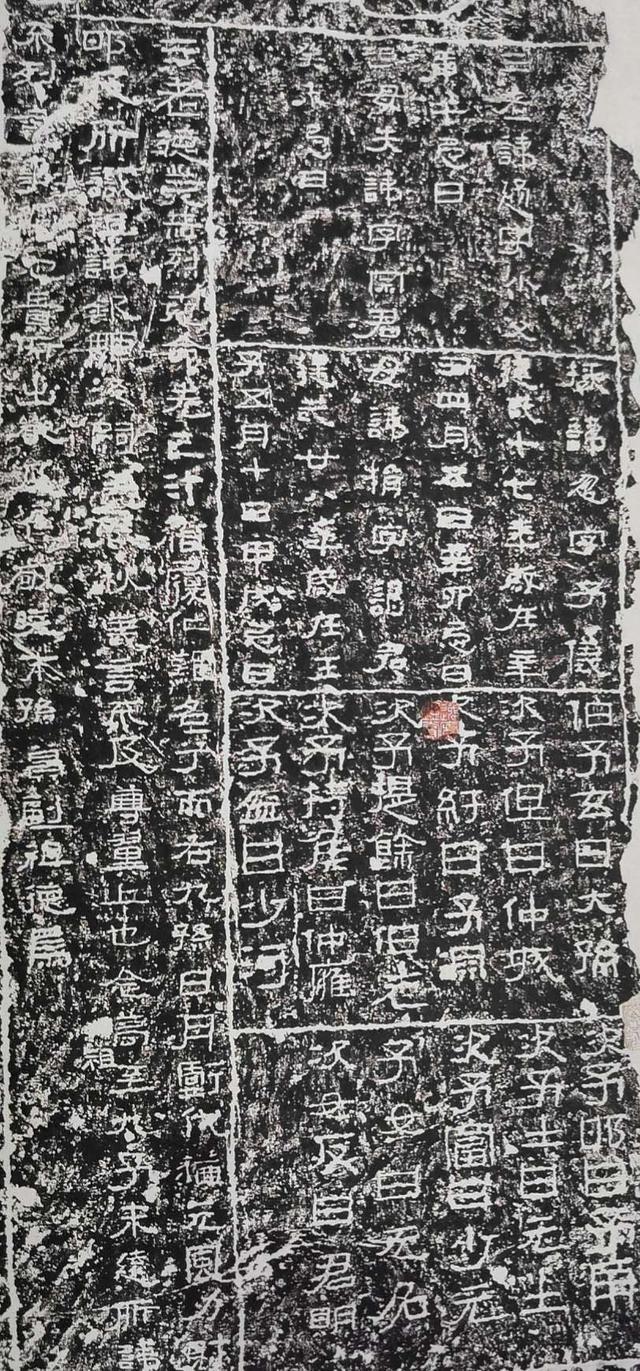 三老諱通字小父
庚午忌日
祖母失諱字宗君
癸未忌日
掾諱忽字子儀
建武十七年歲在辛
丑四月五日辛卯忌日
母諱捐字謁君
建武廿八年歲在壬
子五月十日甲戌忌日
伯子玄曰大孫
次子但曰仲城
次子紆曰子淵
次子提餘曰伯老
次子持侯曰仲雍
次子盆曰少河
次子邯曰子南
次子士曰元士
次子富曰少元
子女曰无名
次女反曰君明
三老德業赤烈克命先己汁稽履仁難名兮而右九孫日月虧代猶元風力射
邯及所識祖諱欽顯後嗣蓋春秋義言不及尊翼上也念高祖至九子未遠所諱
不列言事觸忌貴所出嚴及敬曉末孫冀副祖德焉